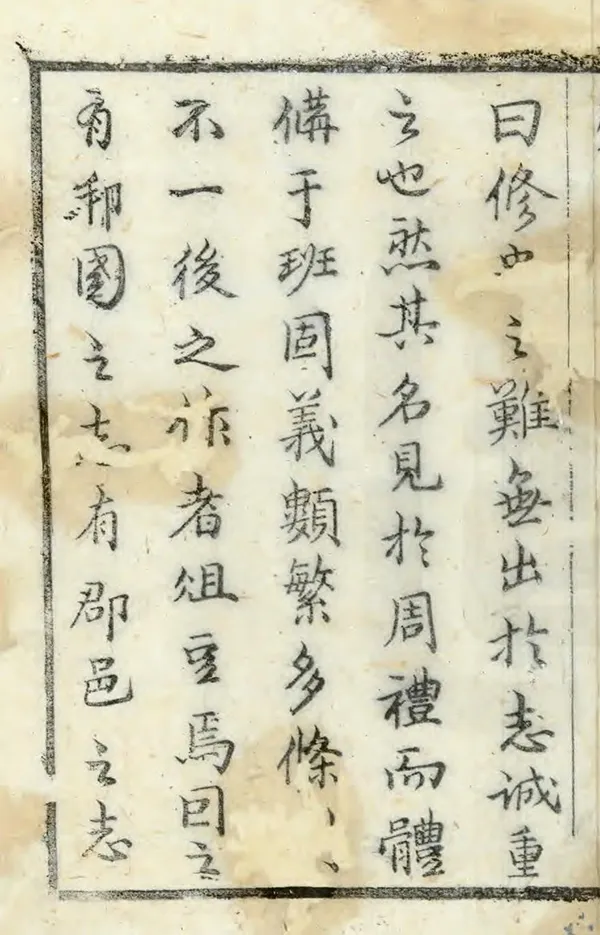 曰修史之難無出於志誠重
之也然其名見於周禮而體
備于班固義類繁多條丶丶
不一後之作者俎豆焉因之
有邦國之志有郡邑之志